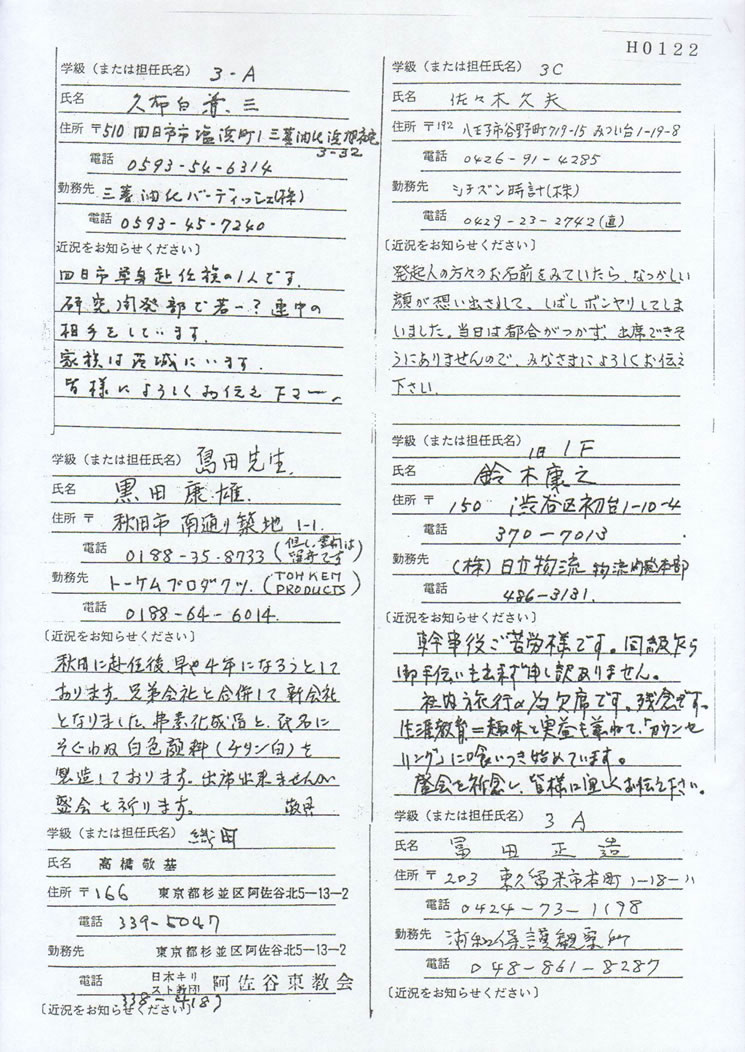 H0122
学級（または担任氏名） 3-A
氏名 久布白 兼三
住所 〒510 四日市市塩浜町1 三菱油化浜旭社宅
3-32
電話 0593-54-6314
勤務先 三菱油化バーディッシェ(株)
電話 0593-45-7240
〔近況をお知らせください〕
四日市単身赴任族の1人です。
研究開発部で若一？連中の
相手をしています。
家族は茨城にいます。
皆様によろしくお伝え下さい。
学級（または担任氏名） 島田先生
氏名 黒田 康雄
住所 〒 秋田市 南通り築地 1-1
電話 0188-35-8733
勤務先 トーケムプロダクツ (TOHKEM
PRODUCTS)
電話 0188-64-6014
〔近況をお知らせください〕
秋田に赴任後早や4年になろうとして
おります。兄弟会社と合併して新会社
となりました。弗素化成品と、氏名に
そぐわぬ白色顔料（チタン白）を
製造しております。出席出来ませんが
盛会を祈ります。 敬具
学級（または担任氏名） 織田
氏名 高橋敬基
住所 〒166 東京都杉並区阿佐谷北5―13―2
電話 339-5047
勤務先 東京都杉並区阿佐谷北5―13―2
日本キリ
スト教団 阿佐谷東教会
電話 338-4189
〔近況をお知らせください〕
学級（または担任氏名） 3C
氏名 佐々木久夫
住所 〒192 八王子市谷野町719-15 みつい台1-19-8
電話 0426-91-4285
勤務先 シチズン時計(株)
電話 0429-23-2742(直)
〔近況をお知らせください〕
発起人の方々のお名前をみていたら、なつかしい
顔が想い出されて、しばしボンヤリしてしま
いました。当日は都合がつかず、出席できそ
うにありませんので、みなさまによろしくお伝え
下さい。
学級（または担任氏名） 旧1F
氏名 鈴木康之
住所 〒 150 渋谷区初台1-10-4
電話 370-7013
勤務先 (株)日立物流 物流 本部
電話 486-3131.
〔近況をお知らせください〕
幹事役ご苦労様です。同級乍ら
御手伝いも出来ず申し訳ありません。
社内旅行の為欠席です。残念です。
生涯教育＝趣味と実益を兼ねて、「カウンセ
リング」に喰いつき始めています。
盛会を祈念し、皆様に宜しくお伝え下さい。
学級（または担任氏名） 3A
氏名 冨田正造
住所 〒 203 東久留米市本町1-18-11
電話 0424-73-1198
勤務先 浦和保護観察所
電話 048-861-8287
〔近況をお知らせください〕